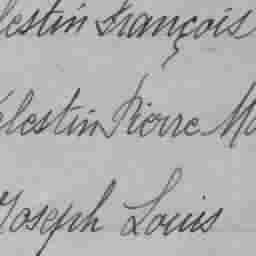 lestin François
élestin Pierre Ma
Joseph Louis